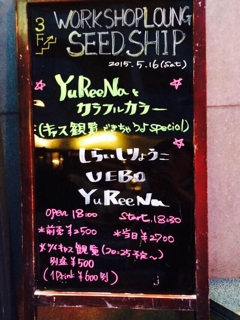 3F WORKSHOP LOUNG
SEED SHIP
2015.5.16 (Sat)
YuReeNaと
カラフルカラー
(キャス観覧できちゃうよ special)
しらいしりょうこ
UEBO
YuReeNa
open 18:00 Start 18:30
*前売 ¥2500 *当日 ¥2700
*ツイキャス観覧 (20:25予定〜)
別途 ¥500
(1Drink ¥600別)